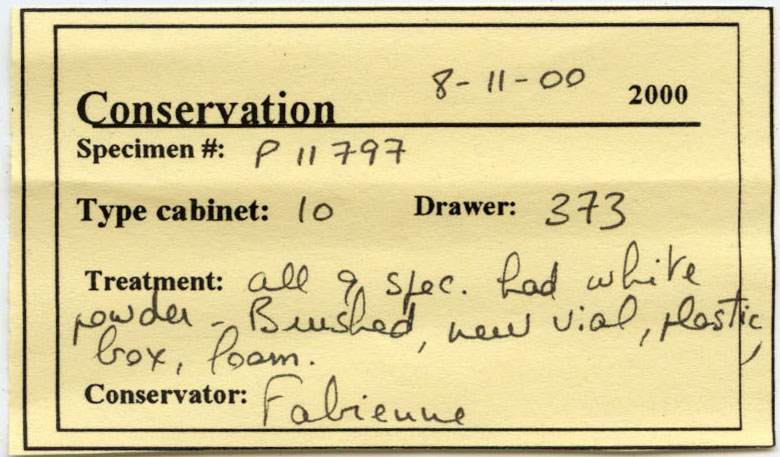 Conservation 8-11-00 2000
Specimen #: P 11797
Type cabinet: 10 Drawer: 373
Treatment: all 9 spec. had white
powder - Brushed, new vial, plastic,
box, foam.
Conservator: Fabienne